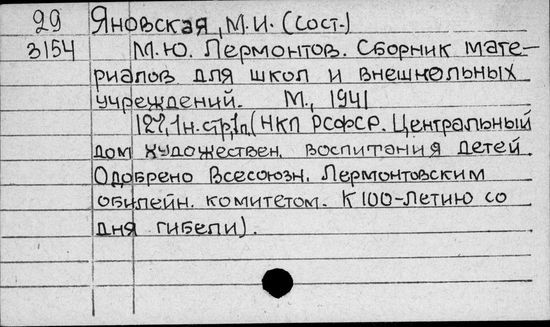 29 Яновская, М.И. (сост.)
3154 М.Ю. Лермонтов. Сборник мате-
риалов для школ и внешкольных
учреждений. М., 1941
127, 1н. стр, 1л, (НКП РСФСР. Центральный
дом художествен. воспитания детей.
Одобрено Всесоюзн. Лермонтовским
юбилейн. комитетом. К 100-летию со
дня гибели).